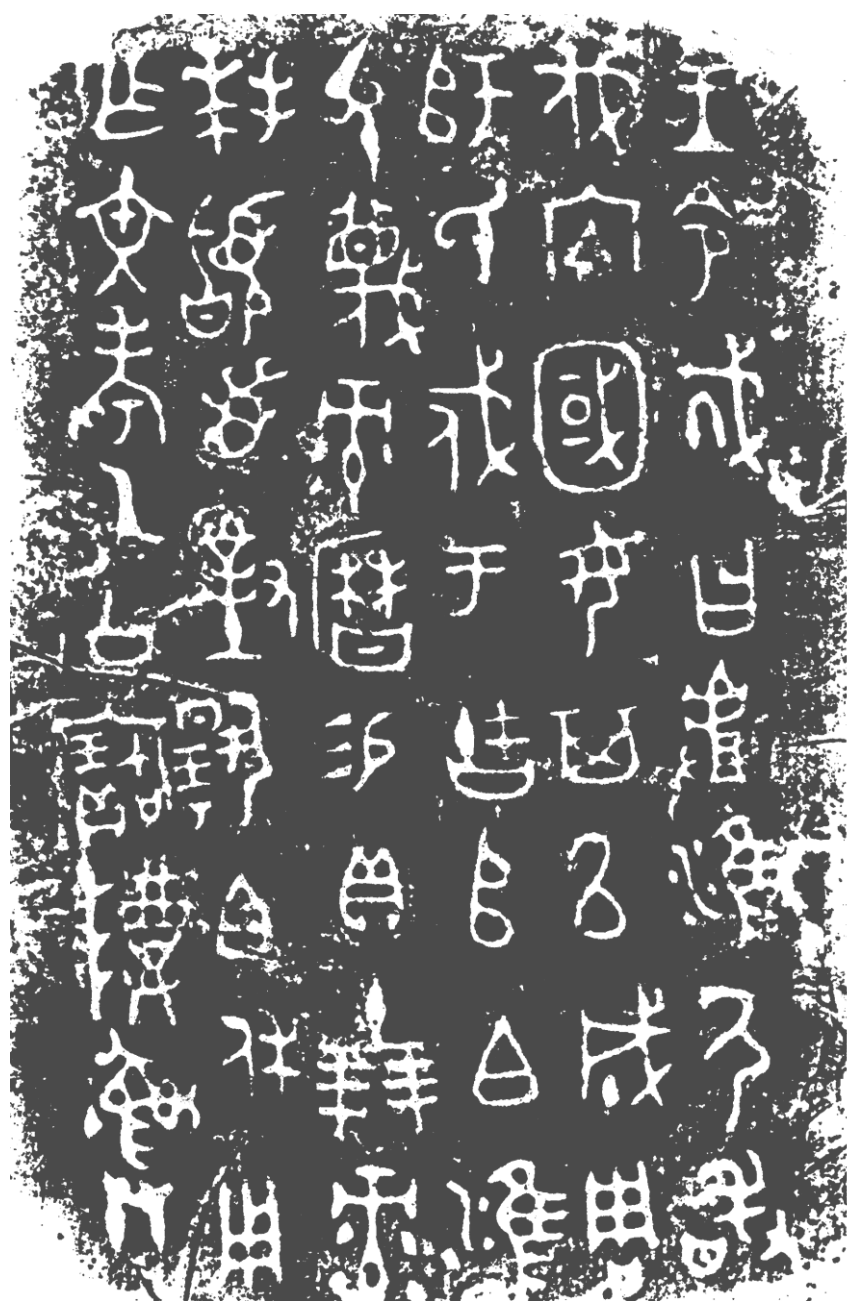 王令𢦚曰𠭯淮尸敢
伐内國女其以成周
師氏戍于古𠂤白雍
父蔑彔曆易貝十朋彔
拜𩒨首對揚白休用
乍文考乙公寶尊彝